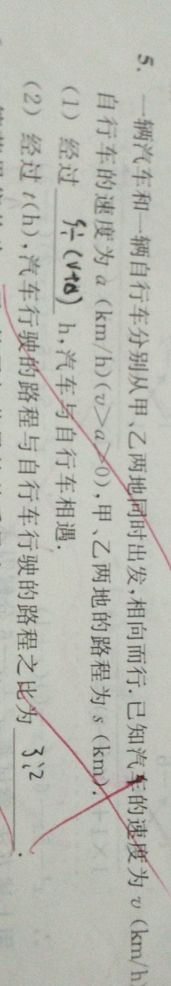 5. 一辆汽车和一辆自行车分别从甲、乙两地同时出发,相向而行.已知汽车的速度为 v (km/h
自行车的速度为 a (km/h)(v>a>0),甲、乙两地的路程为 s (km).
(1) 经过 s÷(v+a) h,汽车与自行车相遇.
(2) 经过 t(h),汽车行驶的路程与自行车行驶的路程之比为 3:2 .